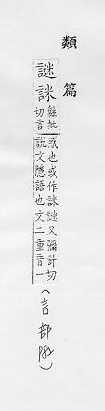 類篇
謎詸
緜批
切言
惑也或作詸謎又彌計切
說文隱語也文二重音一
(言部)